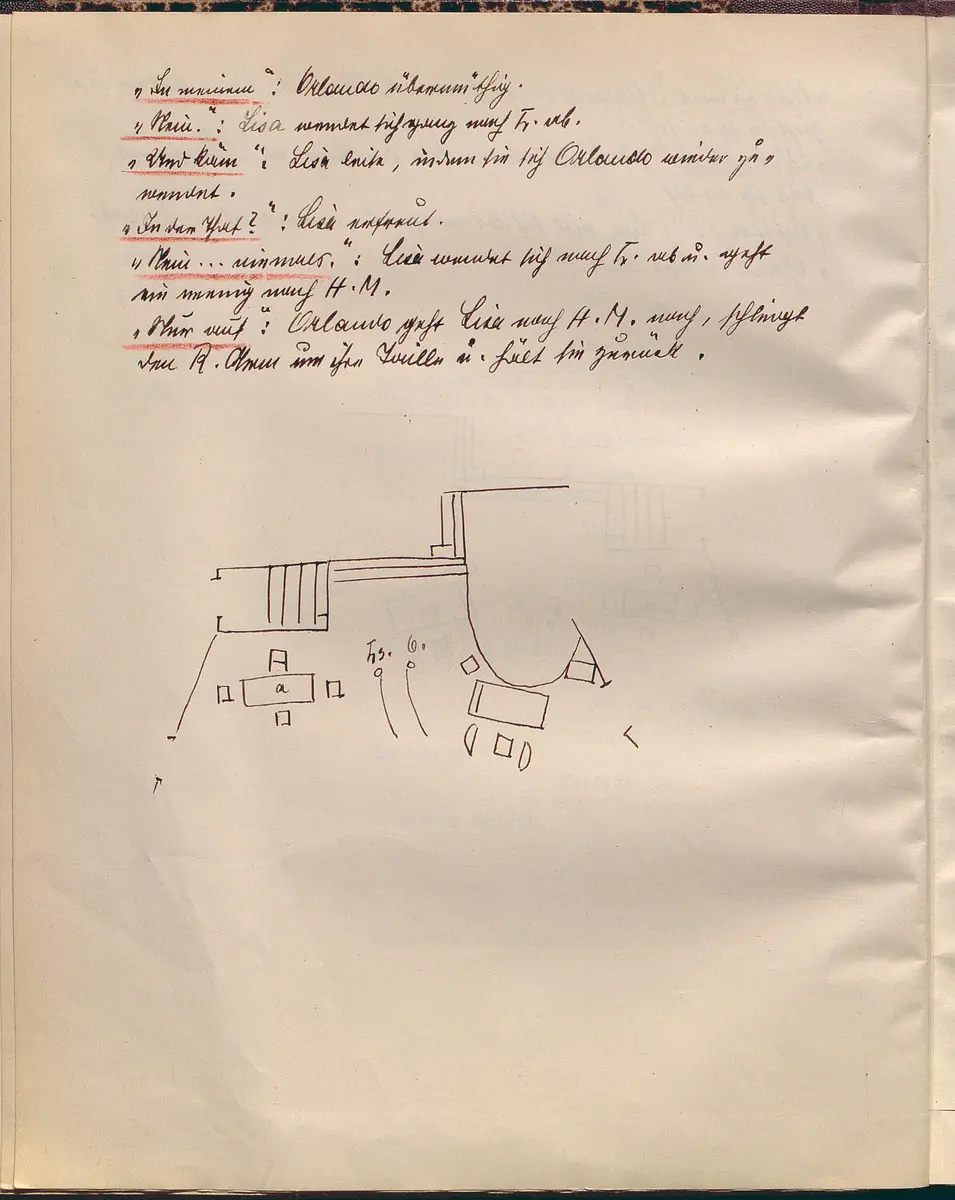 „In meinem“: Orlando übermüthig.
„Nein.“: Lisa wendet sich ganz nach Fr. ab.
„Und käm“: Lisa leise, indem sie sich Orlando wieder zu„
wendet.
„In der That?“: Lisa erfreut.
„Nein... niemals.“: Lisa wendet sich nach Fr. ab u. geht
ein wenig nach H. M.
„Nur auf“: Orlando geht Lisa nach H. M. nach, schlingt
den R. Arm um ihre Taille u. hält sie zurück.
O.
a